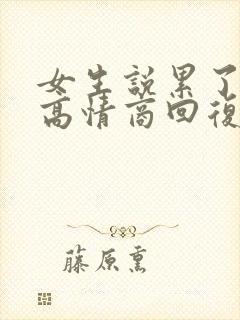 女生説累了
高情商回復
藤原熏